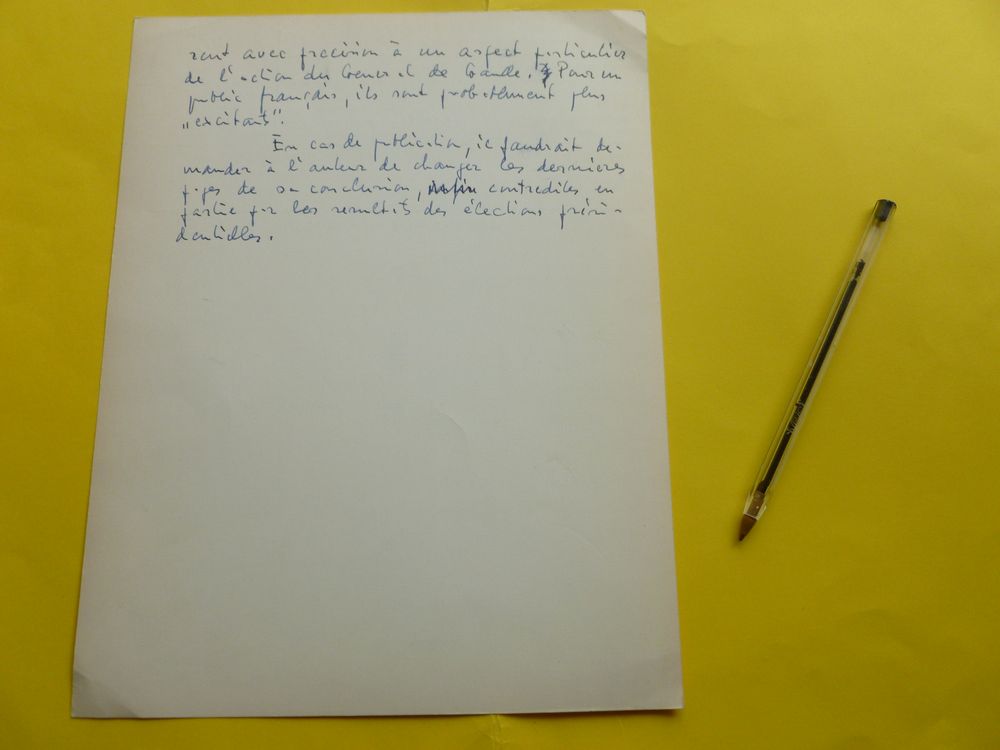 sent avec précision à un aspect particulier
de l'action du Général de Gaulle. Pour un
public français, ils sont probablement plus
„excitants".
En cas de publication, il faudrait de-
mander à l'auteur de changer les dernières
pages de sa conclusion, contredites en
partie par les résultats des élections prési-
dentielles.